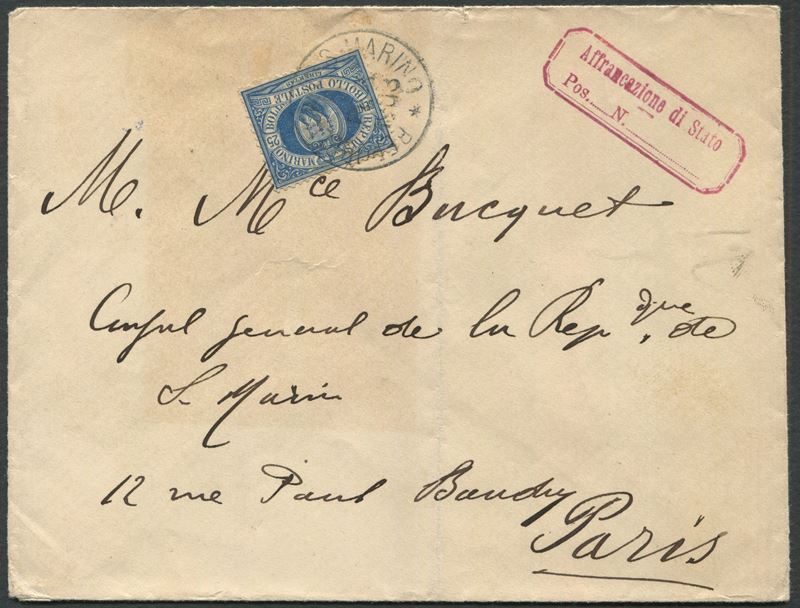 S. MARINO * RE
BOLLO POSTALE
REP. DI S. MARINO
Affrancazione di Stato
Pos. N.
M. Mce Bucquet
Consul general de la Repque. de
S. Marin
12 rue Paul Baudry
Paris